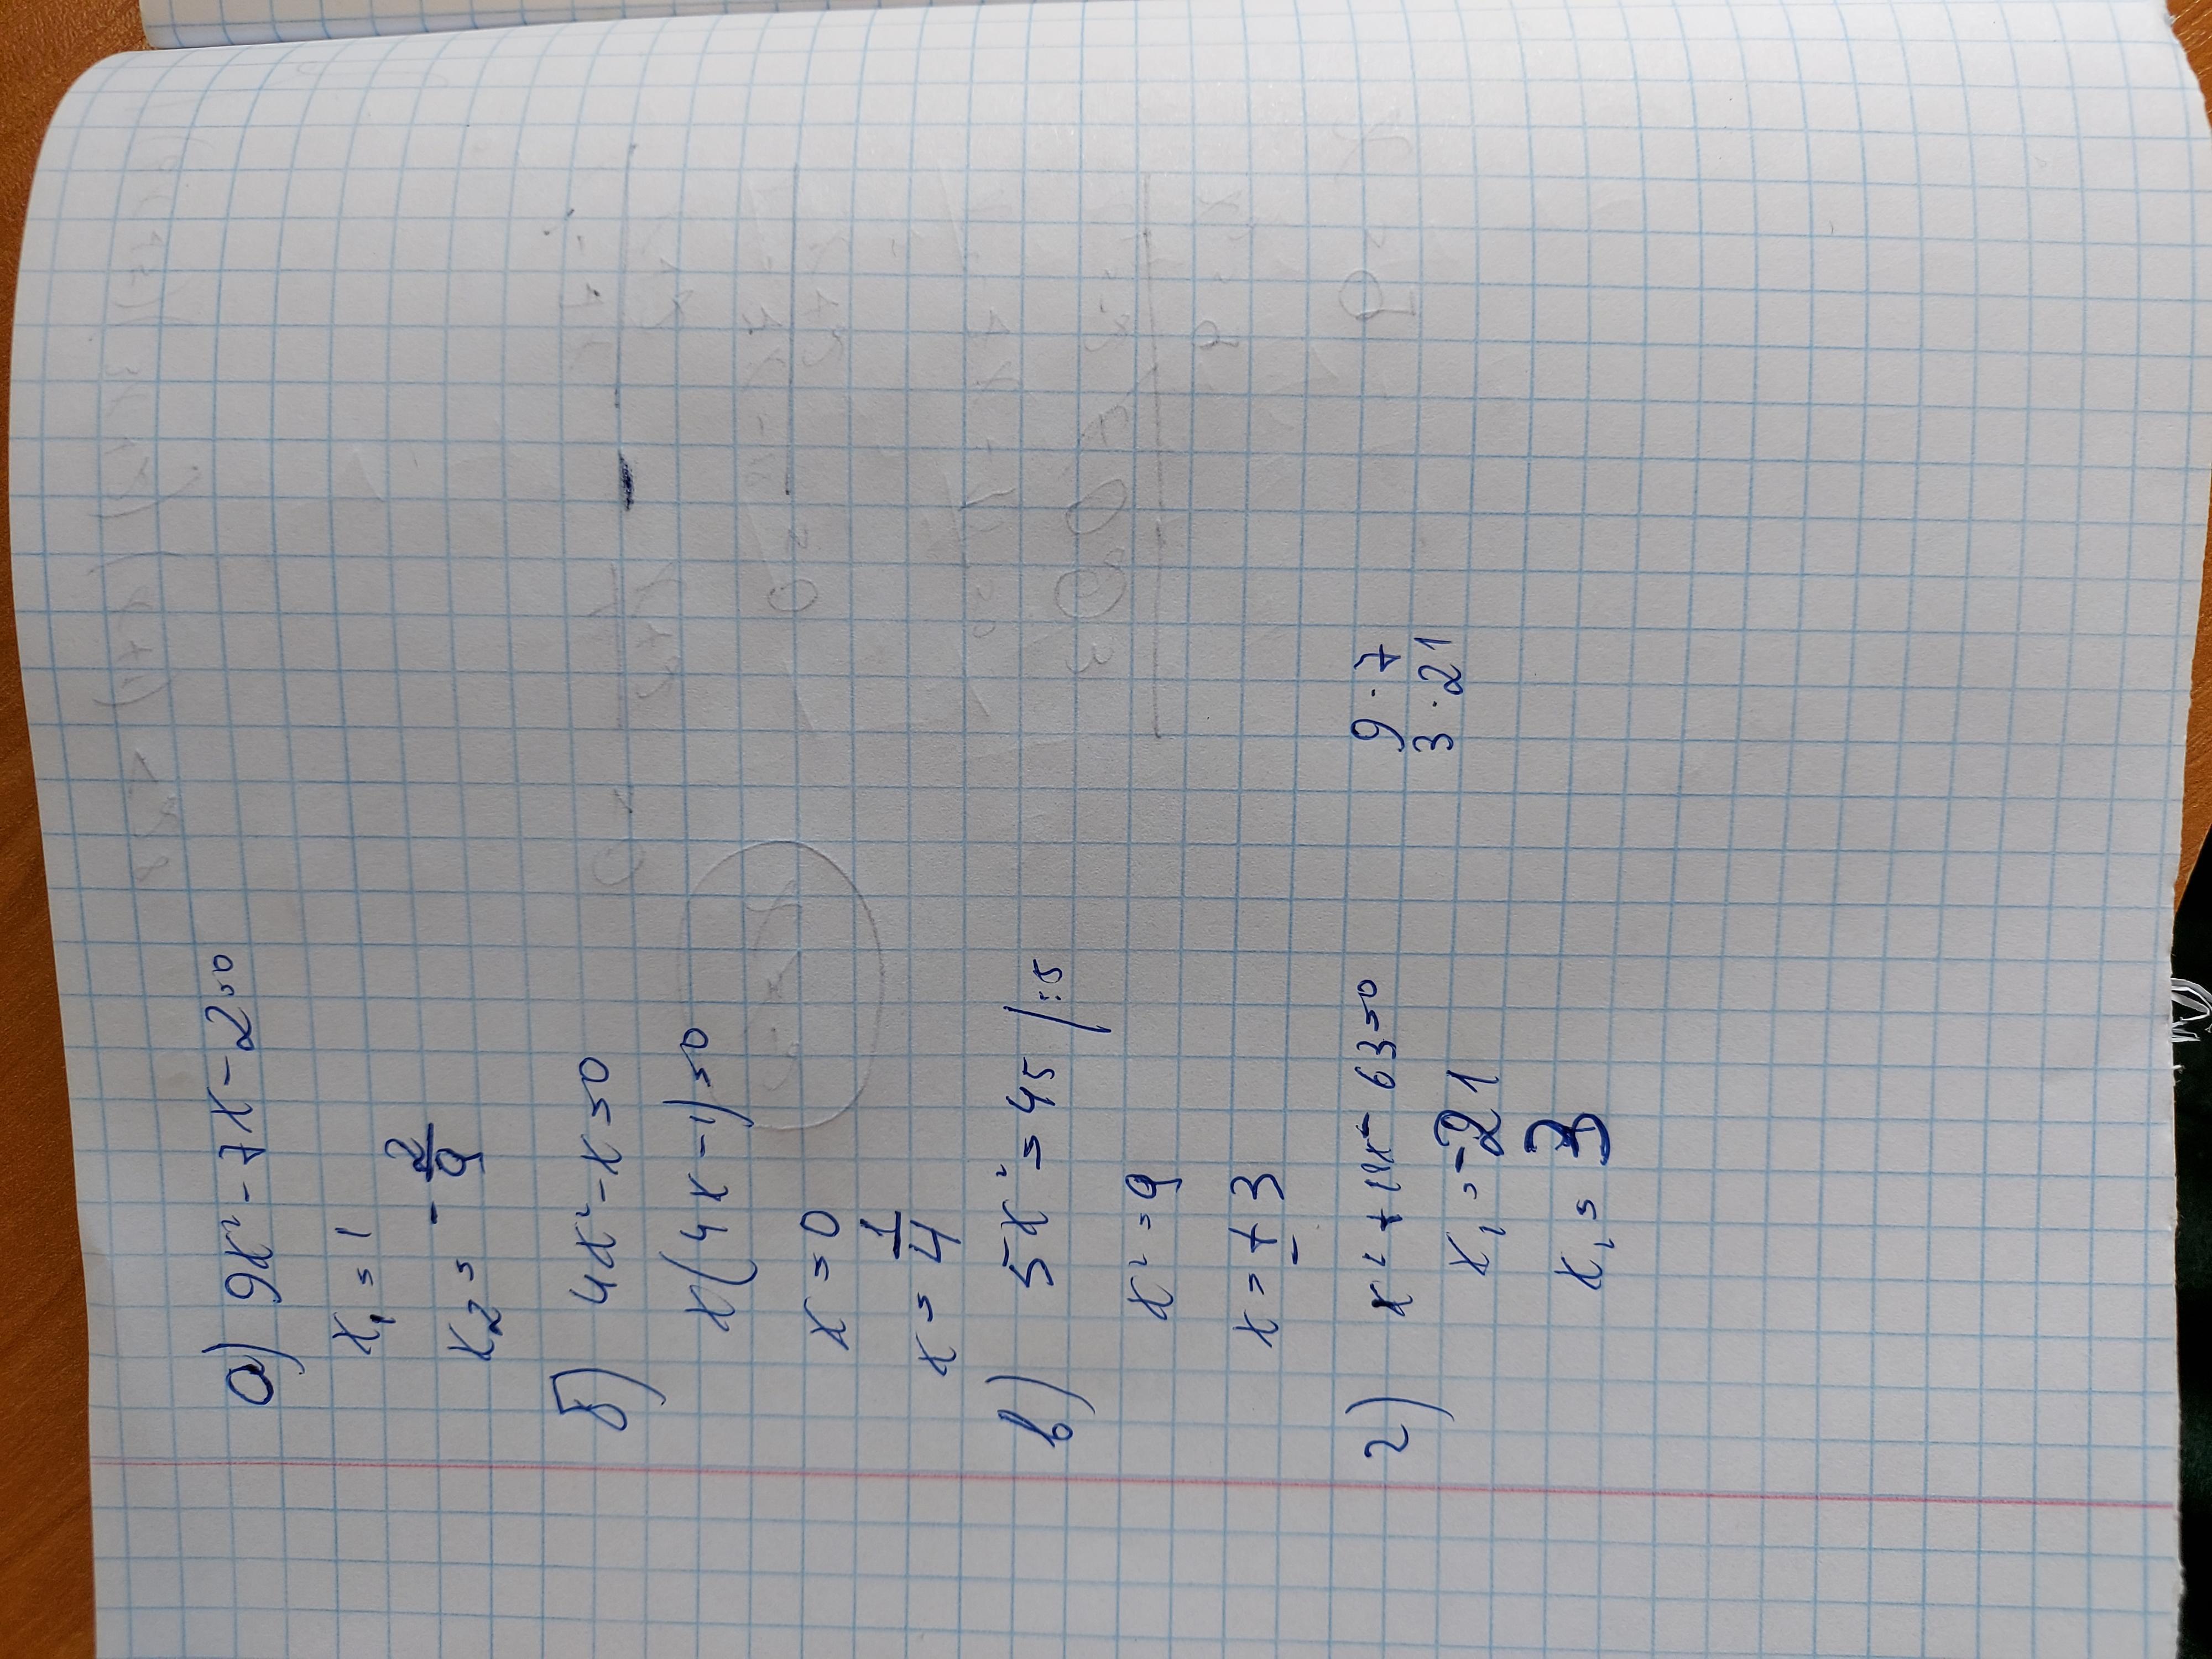 а) 9x² - 7x - 2 = 0
x₁ = 1
x₂ = - 2/9
б) 4x² - x = 0
x(4x - 1) = 0
x = 0
x = 1/4
в) 5x² = 45 / :5
x² = 9
x = ± 3
г) x² + 18x - 63 = 0
x₁ = -21
x₂ = 3
9 · 7
3 · 21